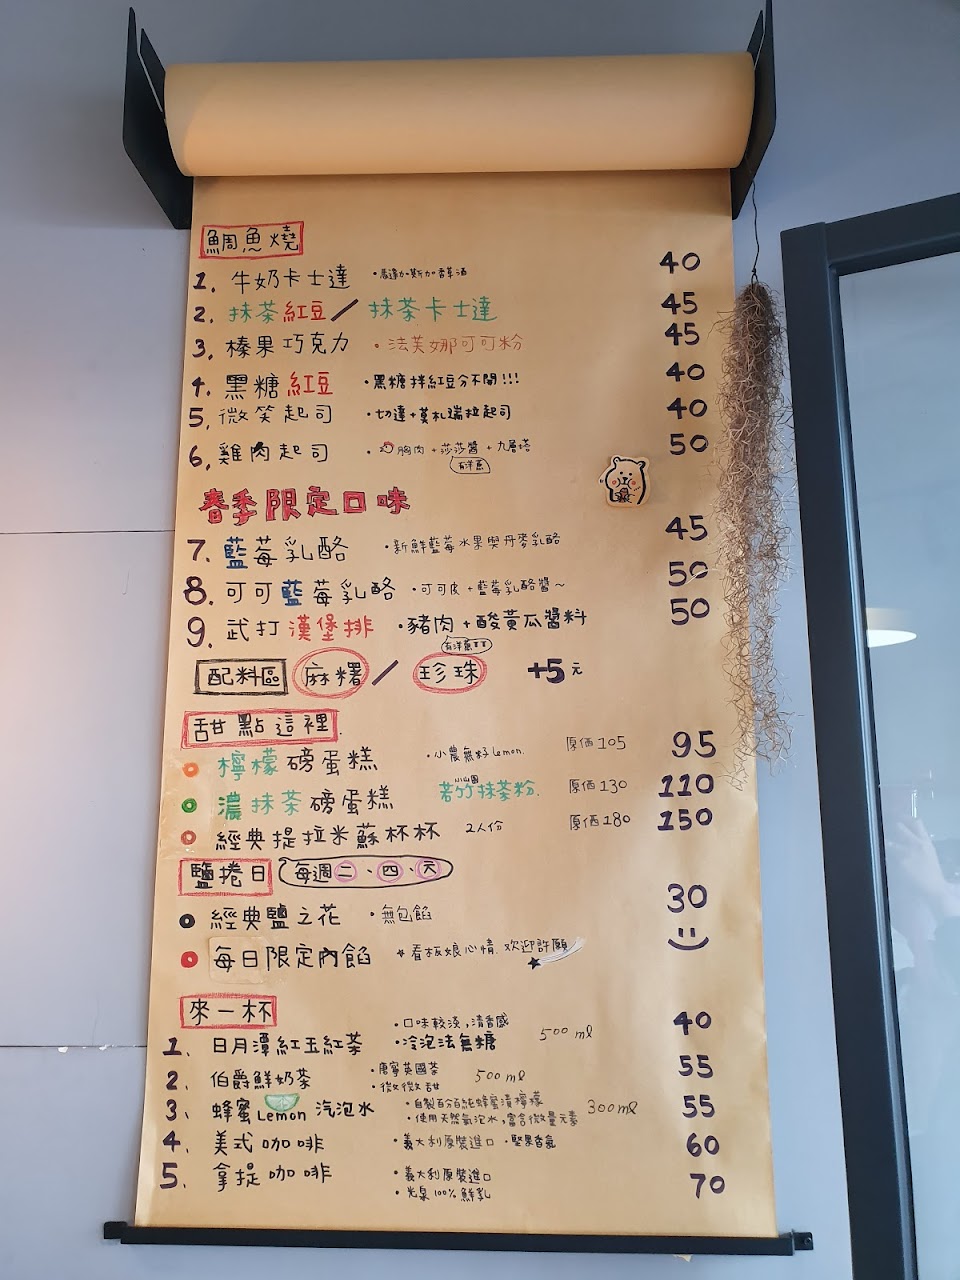 鯛魚燒
1. 牛奶卡士達 •馬達加斯加香草酒 40
2. 抹茶紅豆／抹茶卡士達 45
3. 榛果巧克力 •法芙娜可可粉 45
4. 黑糖紅豆 •黑糖拌紅豆分不開!!! 40
5. 微笑起司 •切達+莫札瑞拉起司 40
6. 雞肉起司 •胸肉+莎莎醬+九層塔 50
有洋蔥
春季限定口味
7. 藍莓乳酪 •新鮮藍莓水果與丹麥乳酪 45
8. 可可藍莓乳酪 •可可皮+藍莓乳酪醬～ 50
9. 武打漢堡排 •豬肉+酸黃瓜醬料 50
有洋蔥
配料區 麻糬／珍珠 +5元
甜點這裡.
檸檬磅蛋糕 •小農無籽Lemon. 原価105 95
濃抹茶磅蛋糕 小山園 若竹抹茶粉. 原価130 110
經典提拉米蘇杯杯 2人份 原価180 150
鹽捲日 每週二、四、六
經典鹽之花 •無包餡 30
每日限定內餡 看板娘心情.歡迎許願
來一杯
•口味較淡,清香感
1. 日月潭紅玉紅茶 •冷泡法無糖 500ml 40
2. 伯爵鮮奶茶 •唐寧英國茶 500ml 55
•微微甜
3. 蜂蜜Lemon汽泡水 •自製百分百純蜂蜜漬檸檬 300ml 55
•使用天然氣泡水,富含微量元素
4. 美式咖啡 •義大利原裝進口 •堅果香氣 60
5. 拿提咖啡 •義大利原裝進口 70
•光泉100%鮮乳